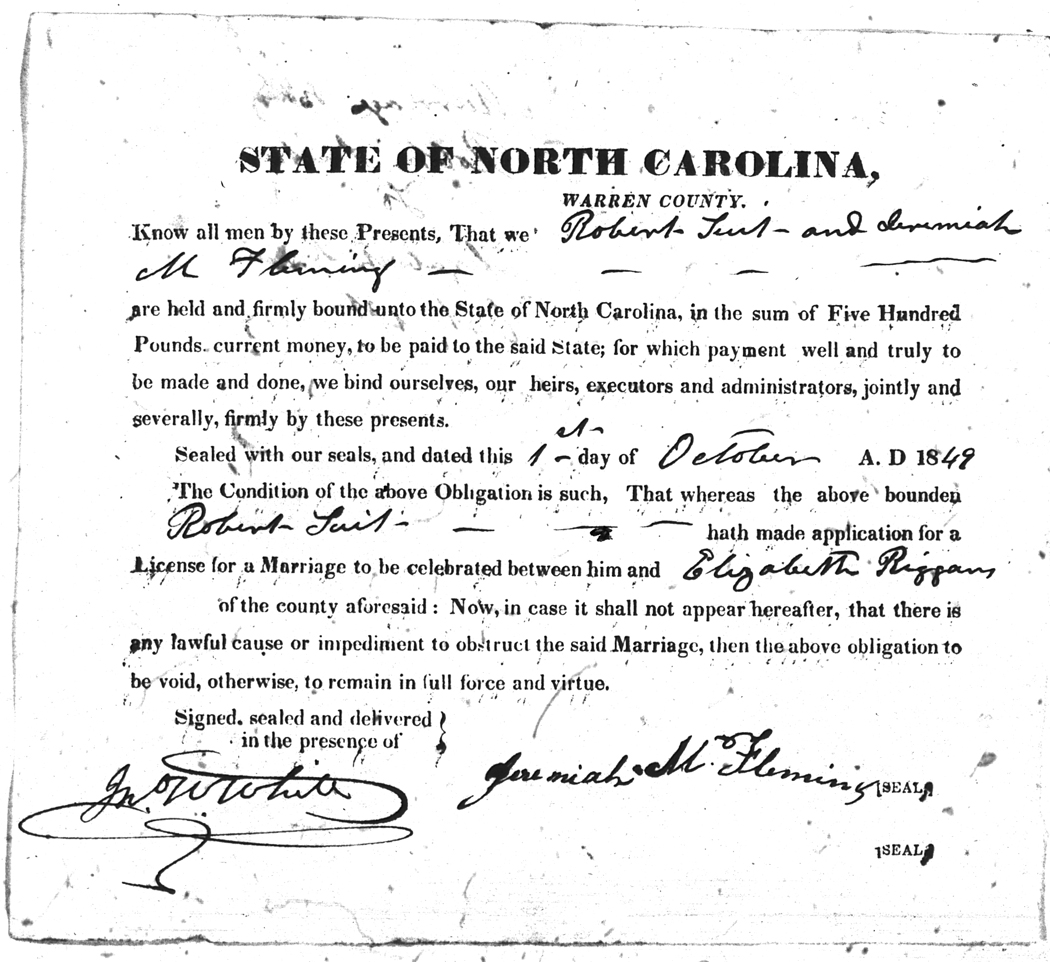 STATE OF NORTH CAROLINA,
WARREN COUNTY.
Know all men by these Presents, That we Robert Suit - and Jeremiah
M Fleming — — — —
are held and firmly bound unto the State of North Carolina, in the sum of Five Hundred
Pounds. current money, to be paid to the said State; for which payment well and truly to
be made and done, we bind ourselves, our heirs, executors and administrators, jointly and
severally, firmly by these presents.
Sealed with our seals, and dated this 1st day of October A. D 1849
The Condition of the above Obligation is such, That whereas the above bounden
Robert Suit - — — — hath made application for a
License for a Marriage to be celebrated between him and Elizabeth Riggans
of the county aforesaid : Now, in case it shall not appear hereafter, that there is
any lawful cause or impediment to obstruct the said Marriage, then the above obligation to
be void, otherwise, to remain in full force and virtue.
Signed, sealed and delivered }
in the presence of
Jno W White
Jeremiah M. Fleming [SEAL]
[SEAL]